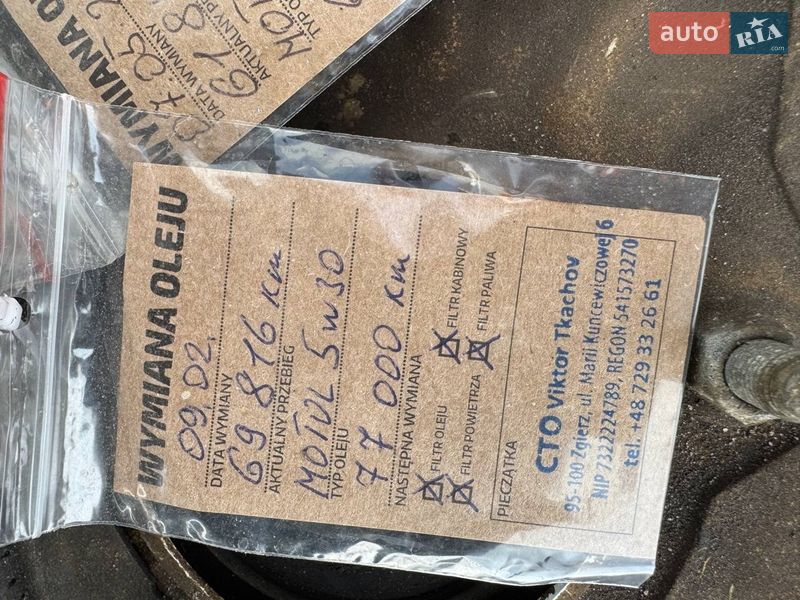 WYMIANA OLEJU
09.02.
DATA WYMIANY
69 816 km
AKTUALNY PRZEBIEG
MOTUL 5w30
TYP OLEJU
77 000 km
NASTĘPNA WYMIANA
FILTR OLEJU FILTR KABINOWY
FILTR POWIETRZA FILTR PALIWA
PIECZĄTKA
CTO Viktor Tkachov
95-100 Zgierz, ul. Marii Kuncewiczowej 6
NIP 7322224789, REGON 541573270
tel. +48 729 33 26 61
WYMIANA
DATA WYMIANY
AKTUALNY
auto RIA
.com